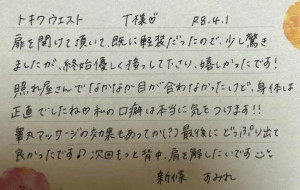 トキワウエスト T様♡ R8.4.1
扉を開けて頂いて、既に軽装だったので、少し驚き
ましたが、終始優しく接して下さり、嬉しかったです!
照れ屋さんでなかなか目が合わなかったけど、身体は
正直でしたね♡私の口癖は本当に気をつけます!!
睾丸マッサージの効果もあってか!?最後にどっぷり出て
良かったです♪次回もっと背中、肩を解したいです
新條 すみれ